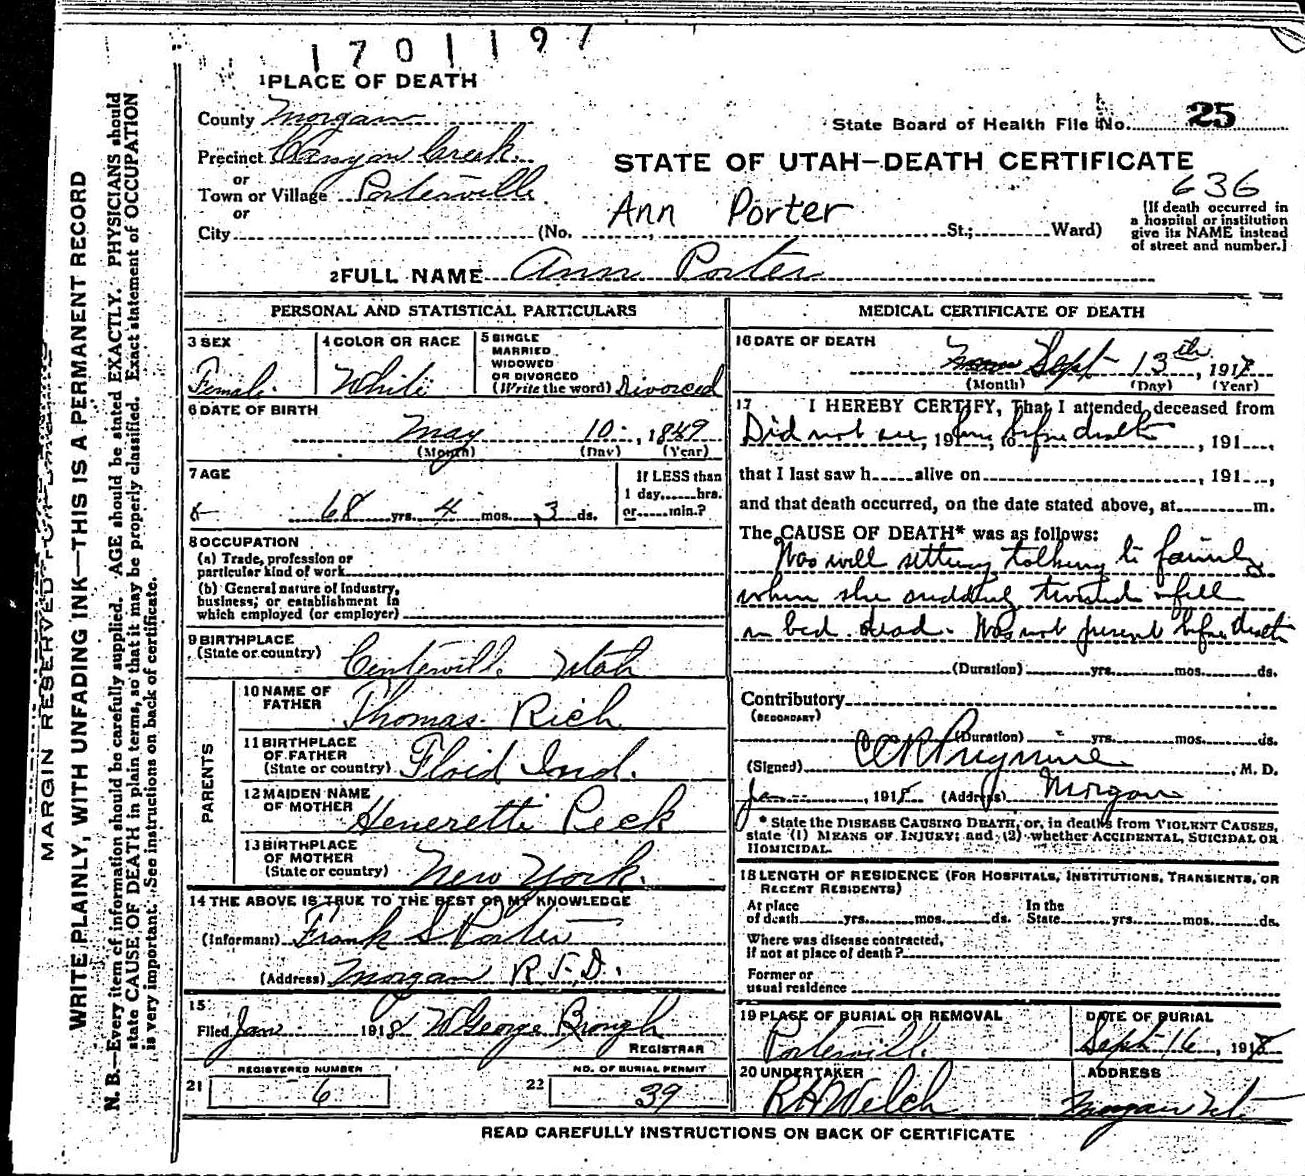 1701197
1 PLACE OF DEATH
County Morgan
State Board of Health File No. 25
Precinct Canyon Creek
STATE OF UTAH—DEATH CERTIFICATE
or
Town or Village Porterville
636
or
Ann Porter
[If death occurred in
a hospital or institution
give its NAME instead
of street and number.]
City (No. St.; Ward)
2 FULL NAME Ann Porter
PERSONAL AND STATISTICAL PARTICULARS
3 SEX
Female
4 COLOR OR RACE
White
5 SINGLE
MARRIED
WIDOWED
OR DIVORCED
(Write the word) Divorced
6 DATE OF BIRTH
May 10, 1849
(Month) (Day) (Year)
7 AGE
68 yrs. 4 mos. 3 ds.
If LESS than
1 day......hrs.
or......min.?
8 OCCUPATION
(a) Trade, profession or
particular kind of work
(b) General nature of industry,
business, or establishment in
which employed (or employer)
9 BIRTHPLACE
(State or country) Centervill. Utah
PARENTS
10 NAME OF
FATHER Thomas Rich
11 BIRTHPLACE
OF FATHER
(State or country) Floid Ind.
12 MAIDEN NAME
OF MOTHER Henerette Peck
13 BIRTHPLACE
OF MOTHER
(State or country) New York.
14 THE ABOVE IS TRUE TO THE BEST OF MY KNOWLEDGE
(Informant) Frank S Porter
(Address) Morgan R.F.D.
15
Filed Jan 1918 W George Brough
REGISTRAR
21 REGISTERED NUMBER
6
22 NO. OF BURIAL PERMIT
39
MEDICAL CERTIFICATE OF DEATH
16 DATE OF DEATH
Sept 13th, 191
(Month) (Day) (Year)
17 I HEREBY CERTIFY, That I attended deceased from
Did not see, 191 , to before death, 191 ,
that I last saw h alive on , 191 ,
and that death occurred, on the date stated above, at m.
The CAUSE OF DEATH* was as follows:
Was well sitting talking to family
when she suddenly & fell
in bed dead. Was not present before death
(Duration) yrs. mos. ds.
Contributory
(SECONDARY)
(Duration) yrs. mos. ds.
(Signed) M. D.
Jan , 1918 (Address) Morgan
* State the DISEASE CAUSING DEATH, or, in deaths from VIOLENT CAUSES,
state (1) MEANS OF INJURY; and (2) whether ACCIDENTAL, SUICIDAL OR
HOMICIDAL.
18 LENGTH OF RESIDENCE (FOR HOSPITALS, INSTITUTIONS, TRANSIENTS, OR
RECENT RESIDENTS)
At place
of death yrs. mos. ds.
In the
State yrs. mos. ds.
Where was disease contracted,
if not at place of death?
Former or
usual residence
19 PLACE OF BURIAL OR REMOVAL
Portervill.
DATE OF BURIAL
Sept 16, 191
20 UNDERTAKER
R H Welch
ADDRESS
Morgan Ut
READ CAREFULLY INSTRUCTIONS ON BACK OF CERTIFICATE
MARGIN RESERVED FOR BINDING
WRITE PLAINLY, WITH UNFADING INK—THIS IS A PERMANENT RECORD
N. B.—Every item of information should be carefully supplied. AGE should be stated EXACTLY. PHYSICIANS should
state CAUSE OF DEATH in plain terms, so that it may be properly classified. Exact statement of OCCUPATION
is very important. See instructions on back of certificate.